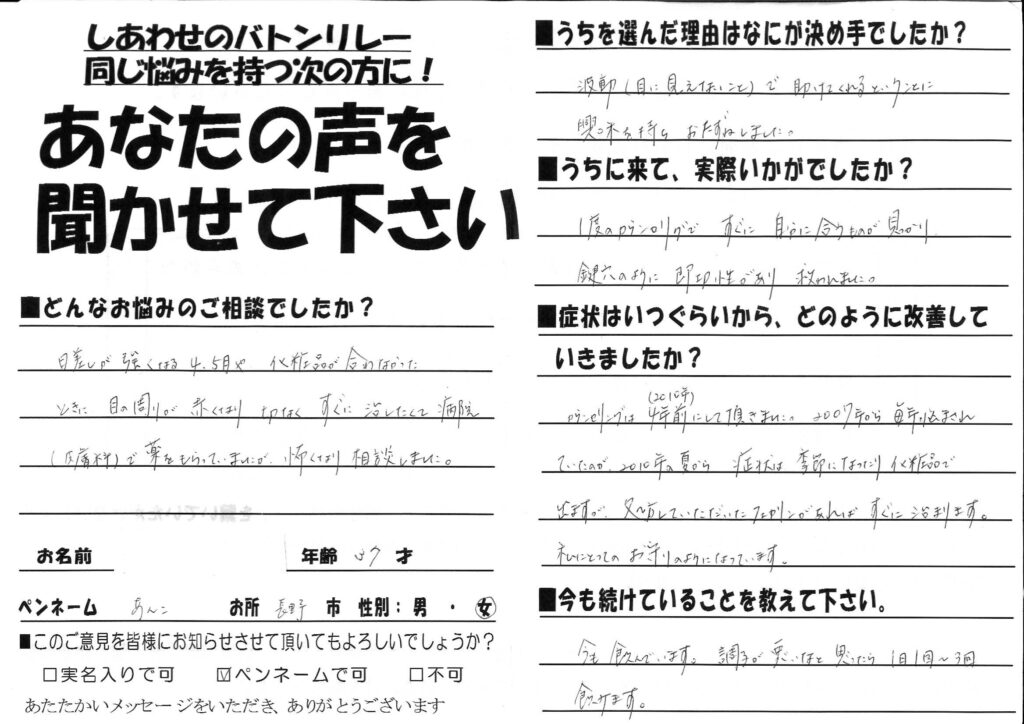 しあわせのバトンリレー
同じ悩みを持つ次の方に！
あなたの声を
聞かせて下さい
■どんなお悩みのご相談でしたか？
日差しが強くなる4、5月や 化粧品が合わなかった
ときに 目の周りが 赤くなり かゆく すぐに 治したくて 病院
(皮膚科)で薬をもらっていましたが、怖くなり 相談しました。
お名前
年齢 37 才
ペンネーム あんこ お所 長野 市 性別：男 ・ 女
■このご意見を皆様にお知らせさせて頂いてもよろしいでしょうか？
□実名入りで可 ☑ペンネームで可 □不可
あたたかいメッセージをいただき、ありがとうございます
■うちを選んだ理由はなにが決め手でしたか？
波動(目に見えないこと)で 助けてくれるということに
興味を持ち おたずねしました。
■うちに来て、実際いかがでしたか？
1度のカウンセリングで すぐに 自分に合うものが見つかり、
鍵穴のように 即効性があり 救われました。
■症状はいつぐらいから、どのように改善して
いきましたか？
(2010年)
カウンセリングは 4年前にして頂きました。2007年から 毎年悩まされ
ていたが、2010年の夏から 症状は 季節になったり 化粧品で
出ますが、処方していただいた があれば すぐに 治まります。
私にとっての お守りのようになっています。
■今も続けていることを教えて下さい。
今も 飲んでいます。調子が 悪いなと 思ったら 1日1回～3回
飲みます。